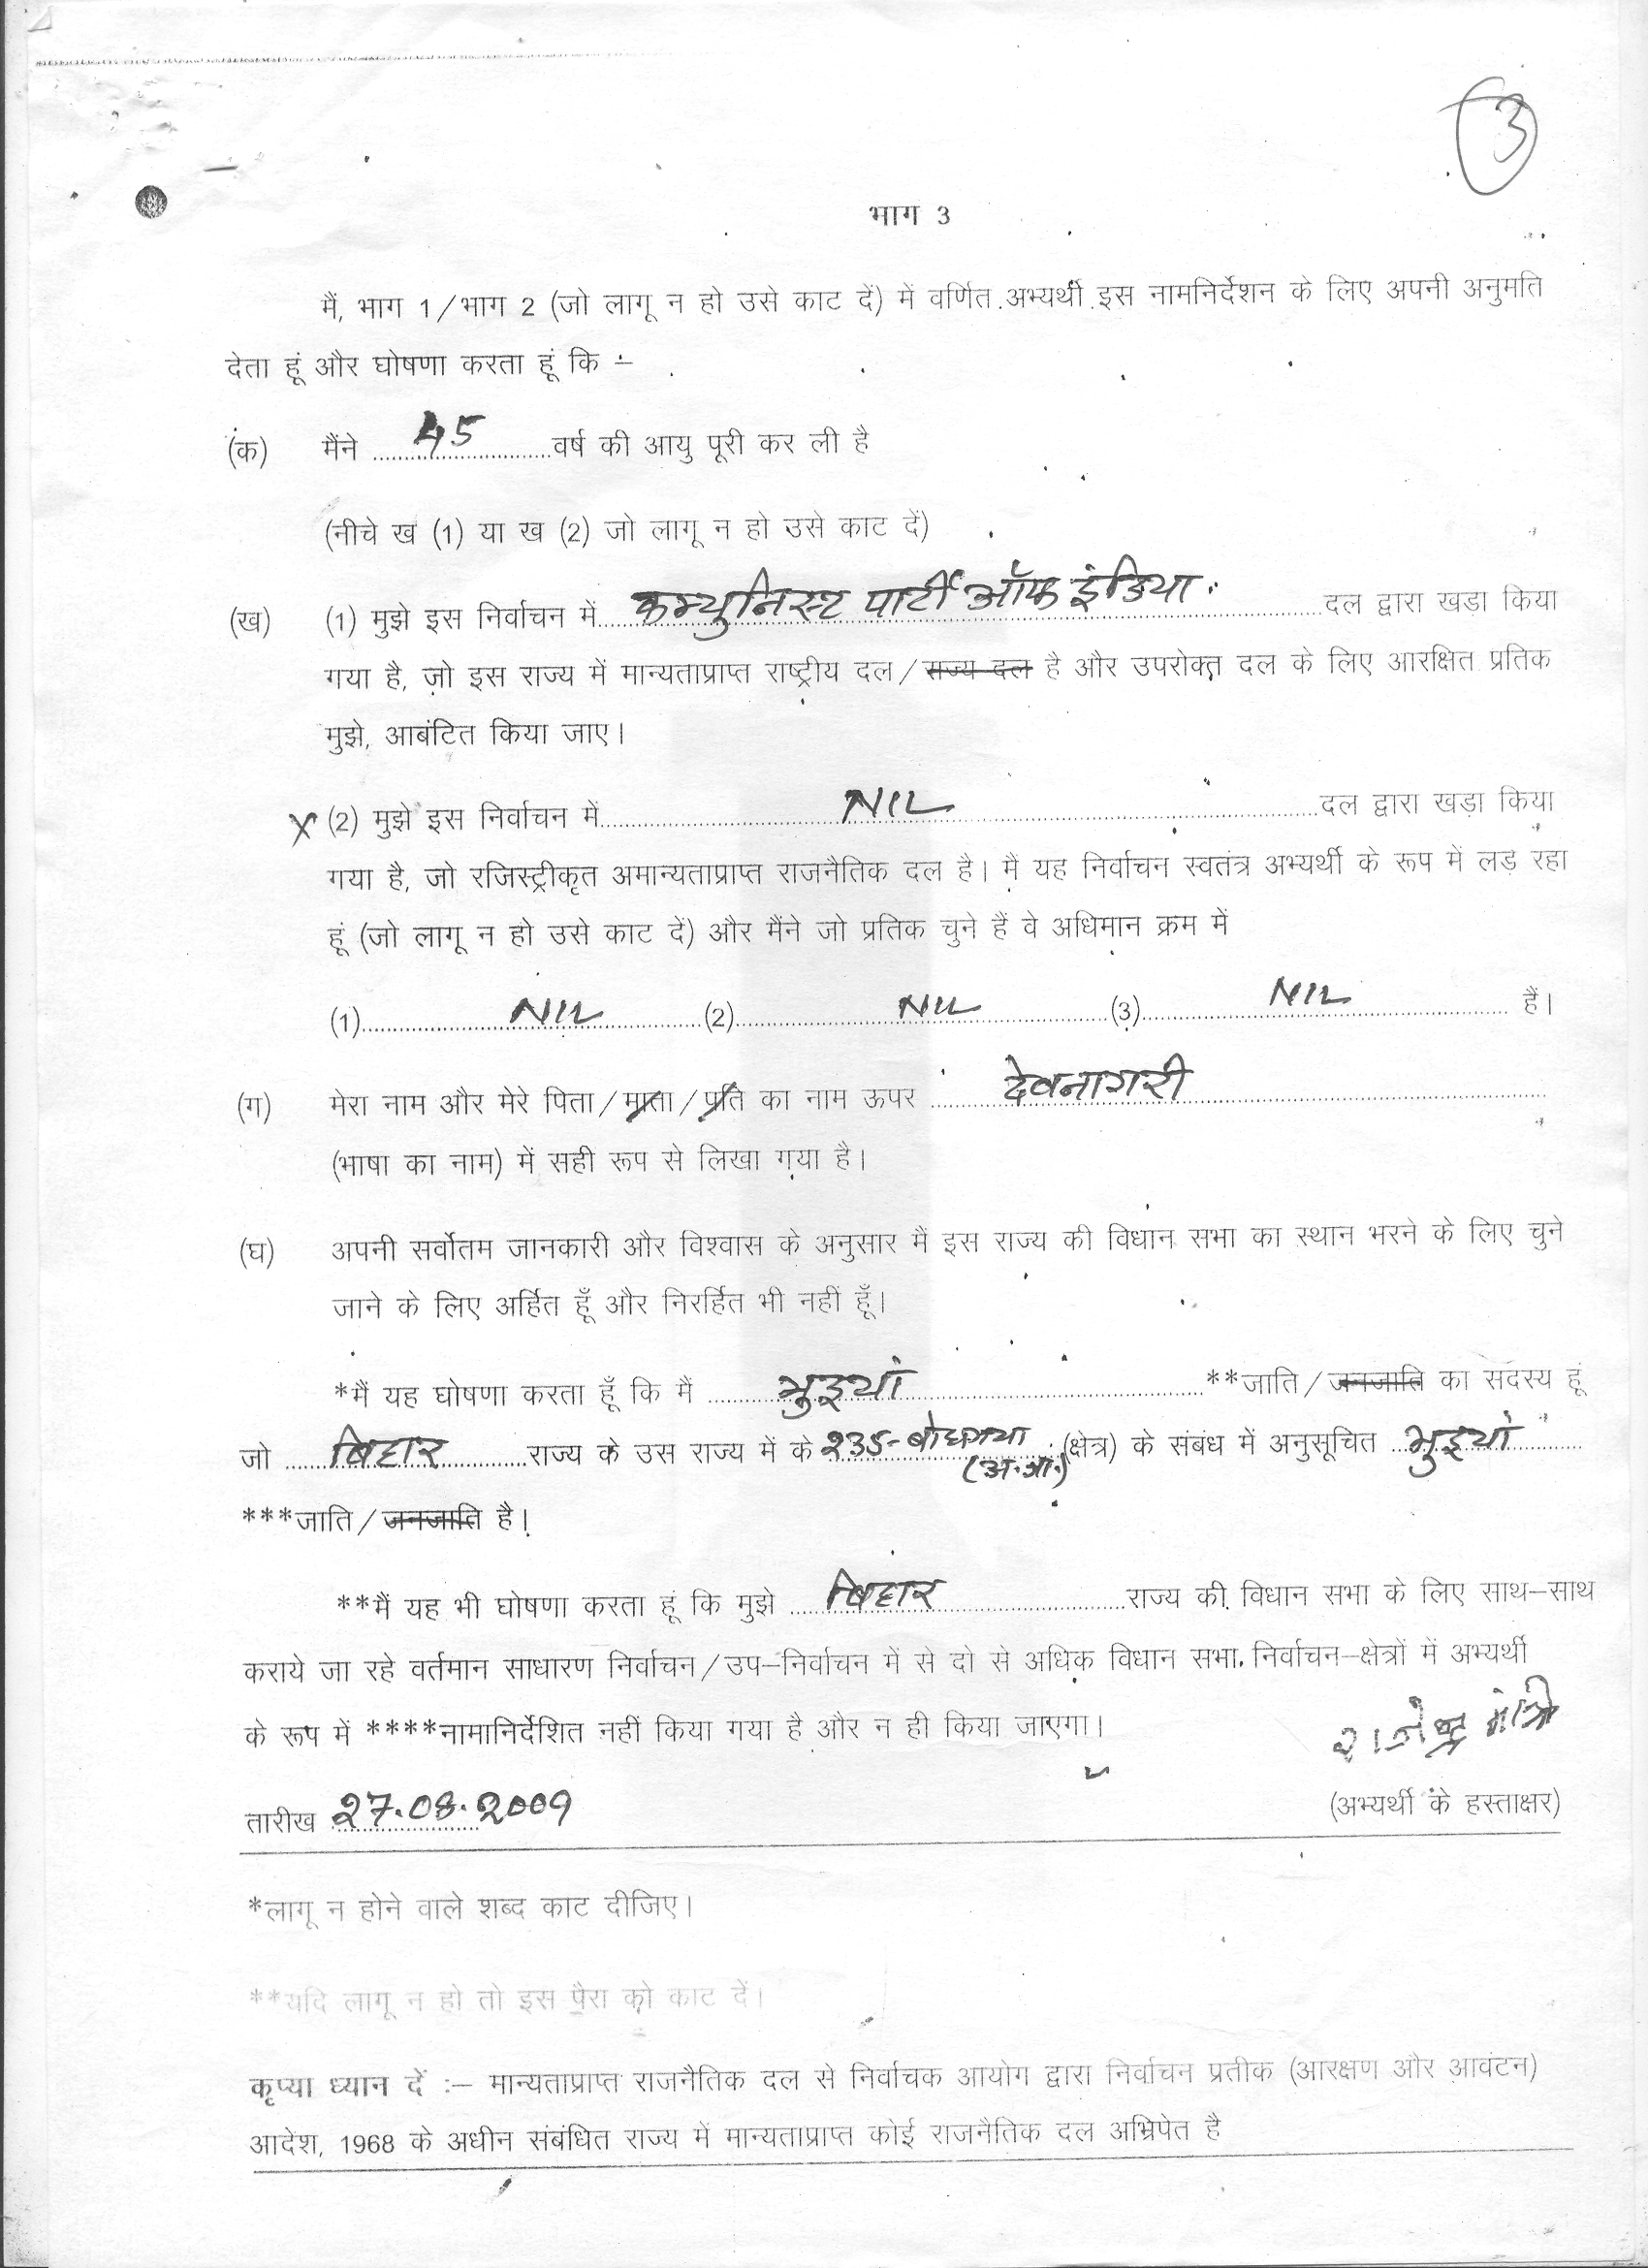 3
भाग 3
मैं, भाग 1/भाग 2 (जो लागू न हो उसे काट दें) में वर्णित अभ्यर्थी इस नामनिर्देशन के लिए अपनी अनुमति
देता हूं और घोषणा करता हूं कि :–
(क) मैंने 45 वर्ष की आयु पूरी कर ली है
(नीचे ख (1) या ख (2) जो लागू न हो उसे काट दें)
(ख) (1) मुझे इस निर्वाचन में कम्युनिस्ट पार्टी ऑफ इंडिया दल द्वारा खड़ा किया
गया है, जो इस राज्य में मान्यताप्राप्त राष्ट्रीय दल/राज्य दल है और उपरोक्त दल के लिए आरक्षित प्रतिक
मुझे, आबंटित किया जाए।
X (2) मुझे इस निर्वाचन में NIL दल द्वारा खड़ा किया
गया है, जो रजिस्ट्रीकृत अमान्यताप्राप्त राजनैतिक दल है। मैं यह निर्वाचन स्वतंत्र अभ्यर्थी के रूप में लड़ रहा
हूं (जो लागू न हो उसे काट दें) और मैंने जो प्रतिक चुने हैं वे अधिमान क्रम में
(1) NIL (2) NIL (3) NIL हैं।
(ग) मेरा नाम और मेरे पिता/माता/पति का नाम ऊपर देवनागरी
(भाषा का नाम) में सही रूप से लिखा गया है।
(घ) अपनी सर्वोतम जानकारी और विश्वास के अनुसार मैं इस राज्य की विधान सभा का स्थान भरने के लिए चुने
जाने के लिए अर्हित हूँ और निरर्हित भी नहीं हूँ।
*मैं यह घोषणा करता हूँ कि मैं भुइयां **जाति/जनजाति का सदस्य हूं
जो बिहार राज्य के उस राज्य में के 235-बोधगया (अ.जा.) (क्षेत्र) के संबंध में अनुसूचित भुइयां
***जाति/जनजाति है।
**मैं यह भी घोषणा करता हूं कि मुझे बिहार राज्य की विधान सभा के लिए साथ–साथ
कराये जा रहे वर्तमान साधारण निर्वाचन/उप–निर्वाचन में से दो से अधिक विधान सभा निर्वाचन–क्षेत्रों में अभ्यर्थी
के रूप में ****नामानिर्देशित नहीं किया गया है और न ही किया जाएगा।
तारीख 27.08.2009
(अभ्यर्थी के हस्ताक्षर)
*लागू न होने वाले शब्द काट दीजिए।
**यदि लागू न हो तो इस पैरा को काट दें।
कृप्या ध्यान दें :– मान्यताप्राप्त राजनैतिक दल से निर्वाचक आयोग द्वारा निर्वाचन प्रतीक (आरक्षण और आवंटन)
आदेश, 1968 के अधीन संबंधित राज्य में मान्यताप्राप्त कोई राजनैतिक दल अभिप्रेत है